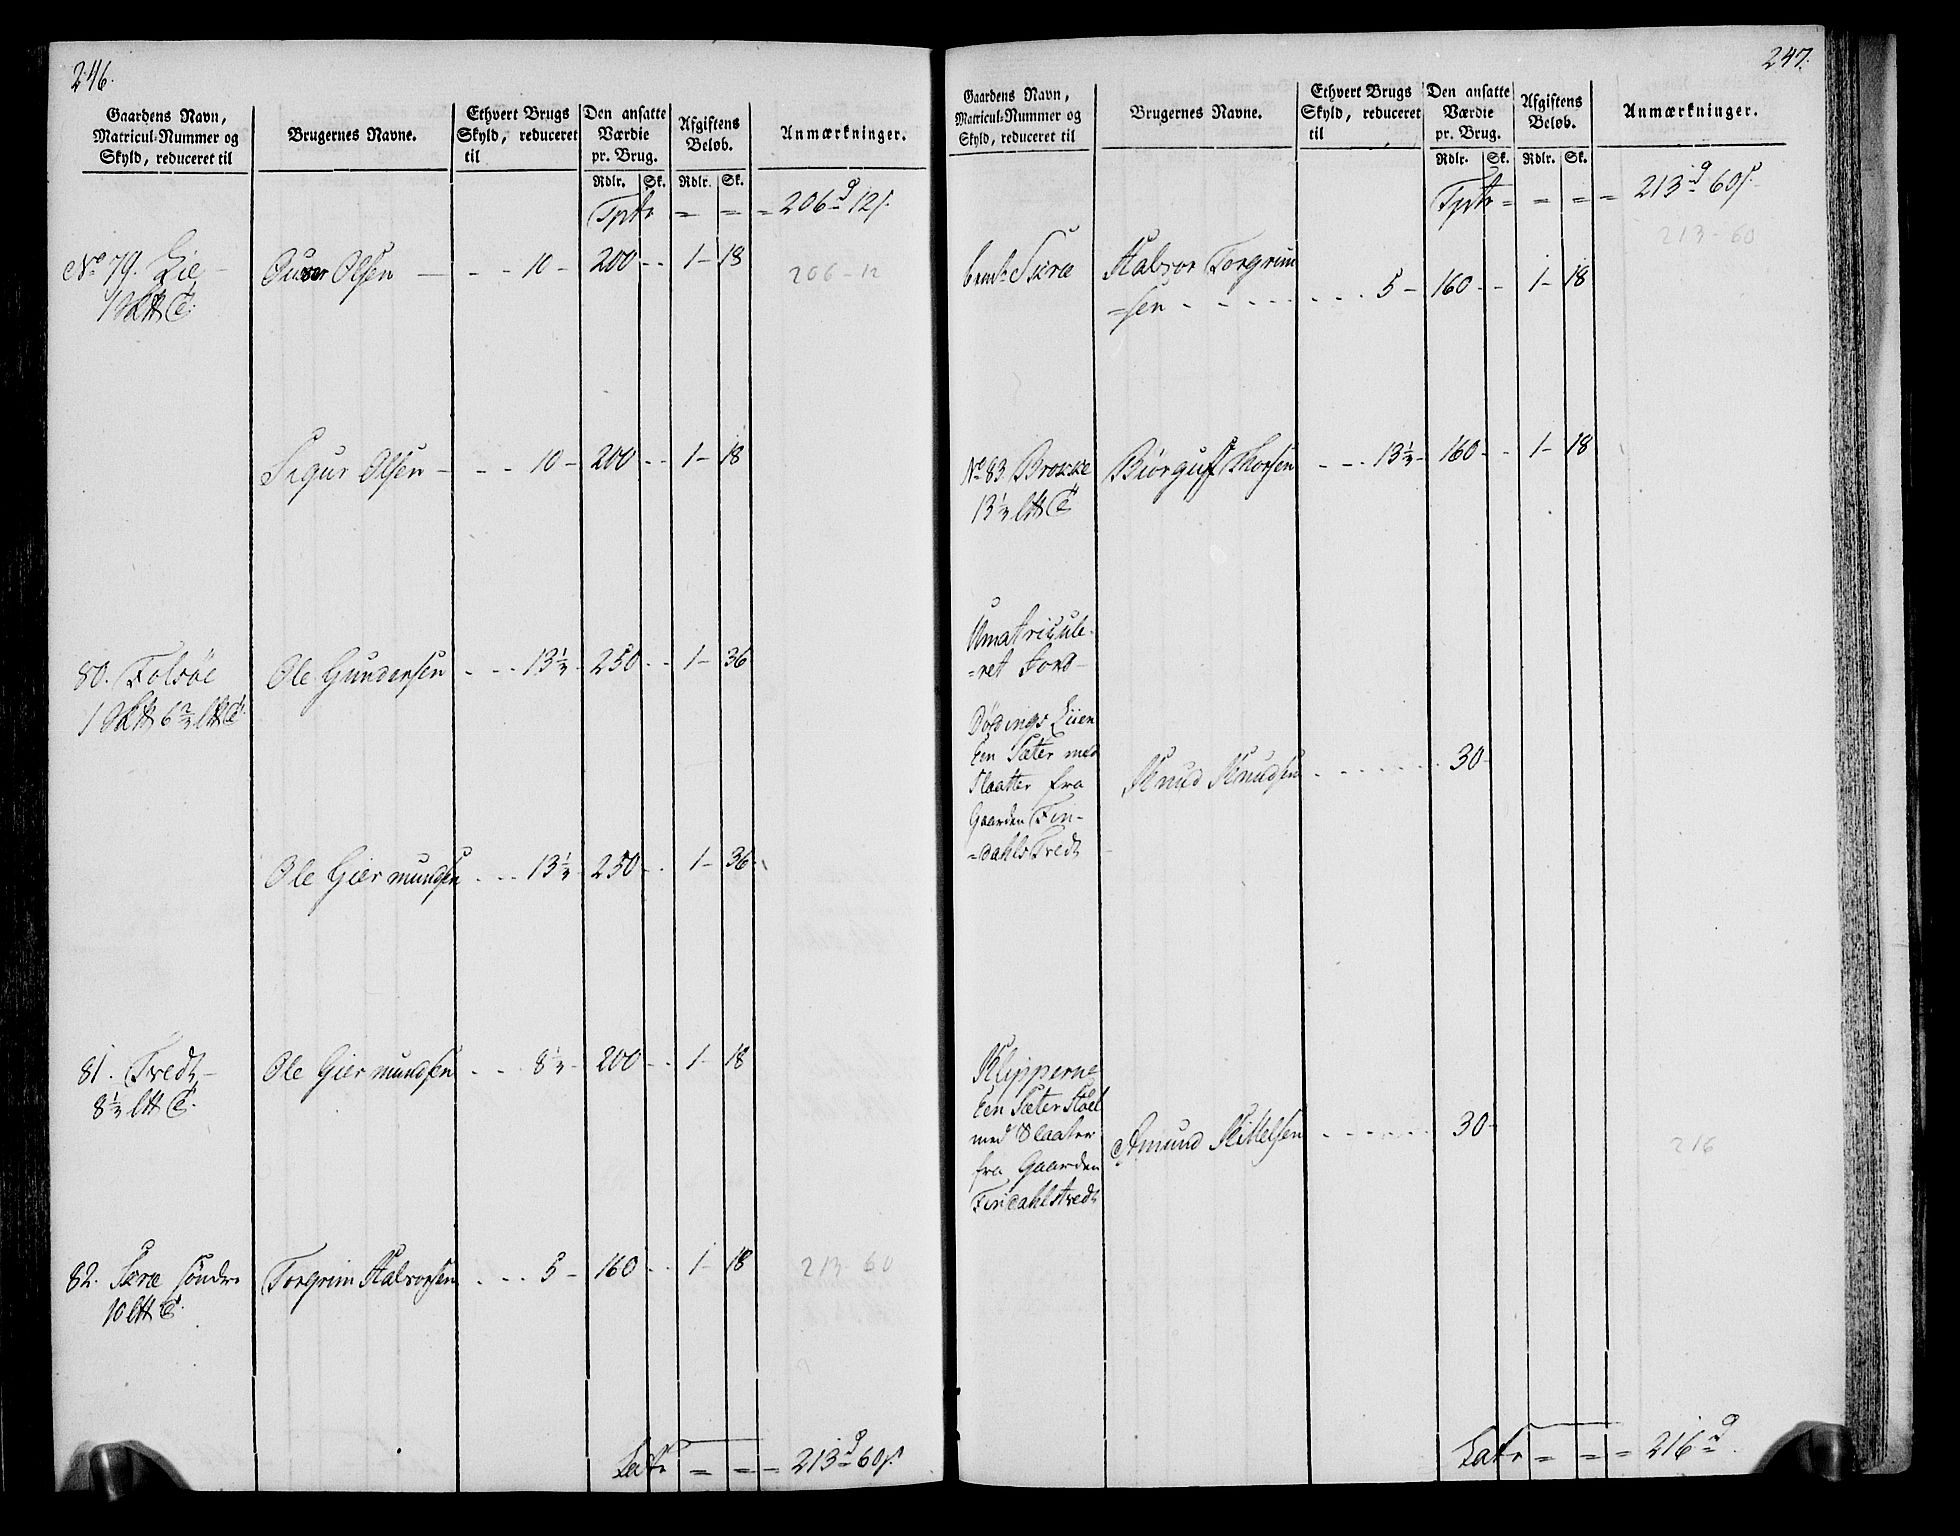 246.
Gaardens Navn,
Matricul-Nummer og
Skyld, reduceret til
Brugernes Navne.
Ethvert Brugs
Skyld, reduceret
til
Den ansatte
Værdie
pr. Brug.
Afgiftens
Beløb.
Anmærkninger.
Rdlr. Sk. Rdlr. Sk.
Tptr = = = 206 d 12 s.
No 79. Lie - Olsen - - - 10 - 200 - - 1 - 18 206 - 12
Sigur Olsen - - - 10 - 200 - - 1 - 18
80. Folsøe Ole Gundersen - - - 13⅓ - 250 - - 1 - 36
Ole Giermundsen - - - 13⅓ - 250 - - 1 - 36
81. Tvedt - Ole Giermundsen - - - 8⅓ - 200 - - 1 - 18
8⅓
82. Særa søndre Torgrim Halvorsen - - - 5 - 160 - - 1 - 18 213 - 60
10
Latr = = = 213 d 60 s.
247.
Gaardens Navn,
Matricul-Nummer og
Skyld, reduceret til
Brugernes Navne.
Ethvert Brugs
Skyld, reduceret
til
Den ansatte
Værdie
pr. Brug.
Afgiftens
Beløb.
Anmærkninger.
Rdlr. Sk. Rdlr. Sk.
Tptr = = = = 213 d 60 s.
213 - 60
Halvor Torgrim
=sen - - - - - - - 5 - 160 - - 1 - 18
No 83. Brokke Biørguf Thorsen - - - 13⅓ - 160 - - 1 - 18
13⅓
Umatricule-
=ret Jord-
Lien
Een Sæter med
Slaatter fra Knud Knudsen - - - - - - 30 -
Gaarden Fin-
=dahls Tvedt
Klipperne
Een Sæter Støel
med Slaatter Amund Kittelsen - - - - - - 30 - 216
fra Gaarden
Findahlstvedt
Latr = = = 216 d